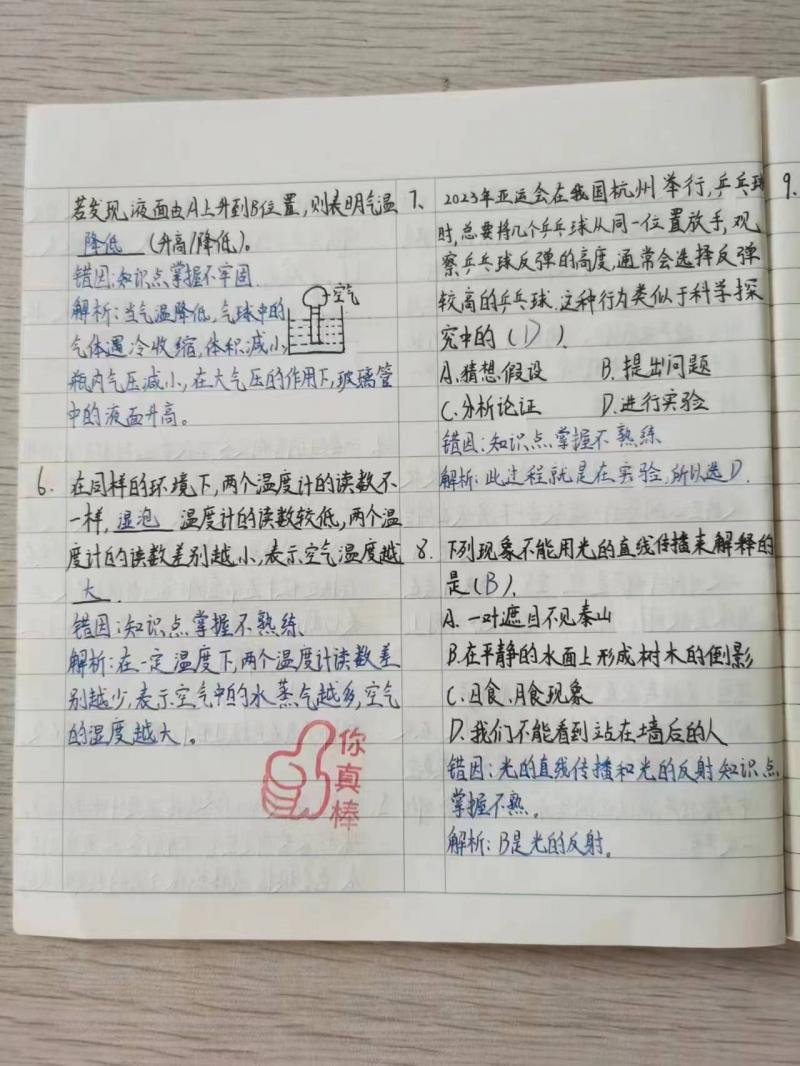 若发现液面由A上升到B位置,则表明气温
降低 (升高/降低)。
错因:知识点掌握不牢固.
解析:当气温降低,气球中的
空气
气体遇冷收缩,体积减小,
瓶内气压减小,在大气压的作用下,玻璃管
中的液面升高。
6. 在同样的环境下,两个温度计的读数不
一样,湿泡 温度计的读数较低,两个温
度计的读数差别越小,表示空气温度越
大.
错因:知识点掌握不熟练.
解析:在一定温度下,两个温度计读数差
别越少,表示空气中的水蒸气越多,空气
的湿度越大。
你真棒
7. 2023年亚运会在我国杭州举行,乒乓球
时,总要将几个乒乓球从同一位置放手,观
察乒乓球反弹的高度,通常会选择反弹
较高的乒乓球.这种行为类似于科学探
究中的(D).
A.猜想假设 B.提出问题
C.分析论证 D.进行实验
错因:知识点掌握不熟练
解析:此过程就是在实验,所以选D.
8. 下列现象不能用光的直线传播来解释的
是(B).
A.一叶遮目不见泰山
B.在平静的水面上形成树木的倒影
C.日食、月食现象
D.我们不能看到站在墙后的人
错因:光的直线传播和光的反射知识点
掌握不熟。
解析:B是光的反射。
9.